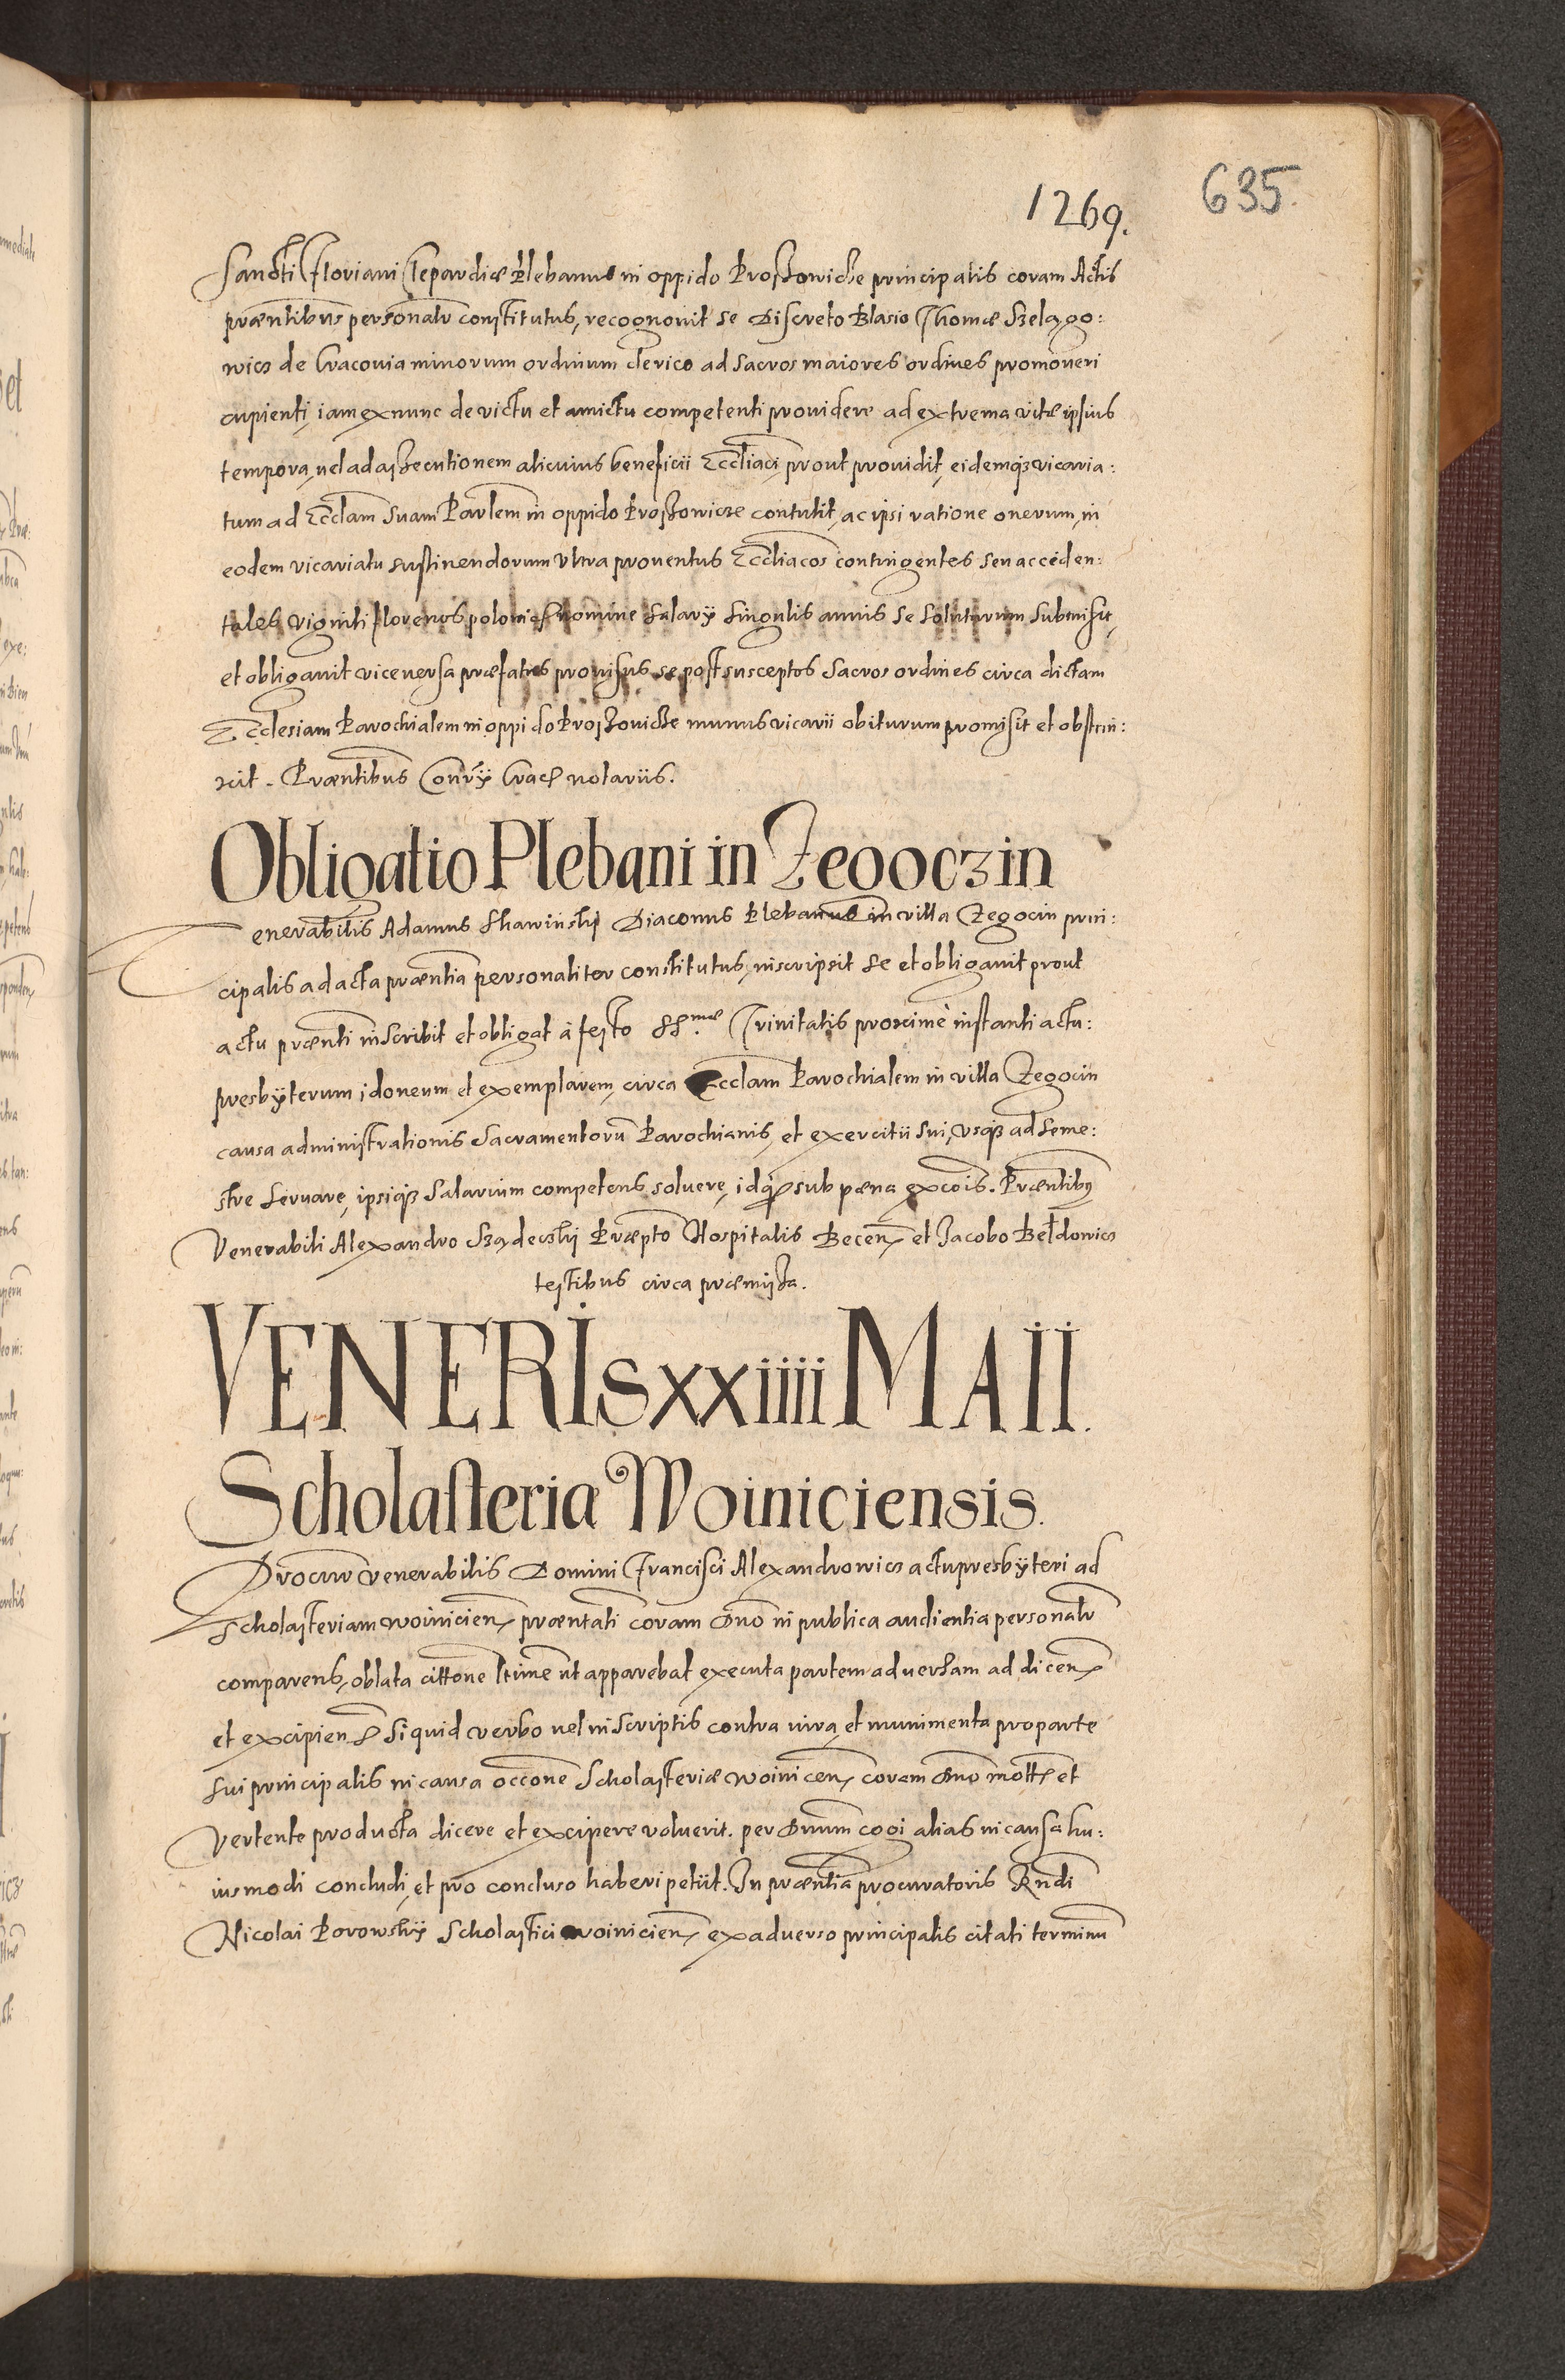 635.
1269.
Sancti Floriani Clepardiæ Plebanus in oppido Proszowicze principalis coram Actis
præntibus personalr constitutus, recognovit se Discreto Blasio Thomæ Szelągo:
wicz de Cracovia minorum ordinum clerico ad sacros maiores ordines promoveri
cupienti, iam exnunc de victu et amictu competenti providere ad extrema vitæ ipsius
tempora, vel ad assecutionem alicuius beneficii Eccliaci, prout providit, eidemq3 vicaria:
tum ad Ecclam suam Parlem in oppido Proszowicze contulit, ac ipsi ratione onerum, in
eodem vicariatu sustinendorum ultra proventus Eccliacos contingentes seu acceden:
tales viginti florenos polonicales nomine salarÿ singulis annis se soluturum submisit,
et obligavit viceversa præfatus provisus, se post susceptos sacros ordines circa dictam
Ecclesiam Parochialem in oppido Proszovicze munus vicarii obiturum promisit et obstrin:
xit. Præntibus Conrÿ Crac notariis.
Obligatio Plebani in Zegoczin
Venerabilis Adamus Skawinskÿ Diaconus Plebanus in villa Zegocin prin:
cipalis ad acta præntia personaliter constitutus, inscripsit se et obligavit prout
actu prænti inscribit et obligat à festo SS.mæ Trinitatis proximè instanti actu:
presbÿterum idoneum et exemplarem, circa Ecclam Parochialem in villa Zegocin
causa administrationis Sacramentorū Parochianis, et exercitii sui, usq3 ad seme:
stre servare, ipsiq3 salarium competens solvere, idq sub pæna excois. Præntibus
Venerabili Alexandro Sządeczkÿ Præpto Hospitalis Becen et Jacobo Bełdowicz
testibus circa præmissa.
VENERIS XXIIII MAII.
Scholasteria Woiniciensis.
Procur Venerabilis Domini Francisci Alexandrowicz actupresbÿteri ad
Scholasteriam woinicien præntati coram Dno in publica audientia personalr
comparens, oblata cittone ltime ut apparebat executa partem adversam ad dicen
et excipien si quid verbo vel in scriptis contra iura et munimenta pro parte
sui principalis in causa occone Scholasteriæ woinicen coram Dno motte et
vertente producta dicere et excipere voluerit. per Dnum cogi alias in causa hu:
iusmodi concludi, et pro concluso haberi petiit. In præntia procuratoris Rndi
Nicolai Porowskÿ Scholastici woinicien ex adverso principalis citati terminū